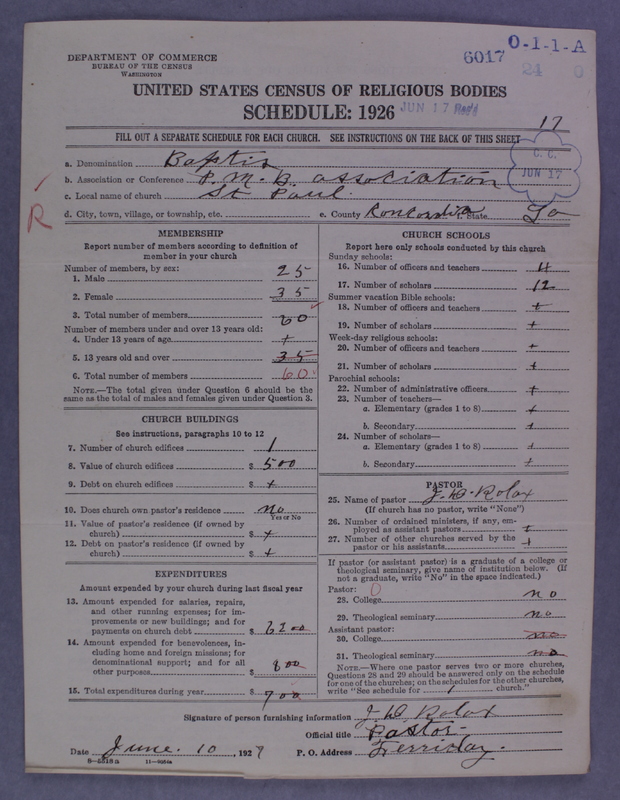 DEPARTMENT OF COMMERCE
BUREAU OF THE CENSUS
WASHINGTON
6017
O-1-1-A
24 0
UNITED STATES CENSUS OF RELIGIOUS BODIES
SCHEDULE: 1926
JUN 17
17
FILL OUT A SEPARATE SCHEDULE FOR EACH CHURCH. SEE INSTRUCTIONS ON THE BACK OF THIS SHEET
C. C.
JUN 17
R
a. Denomination Baptis
b. Association or Conference P. M. B. association
c. Local name of church St Paul
d. City, town, village, or township, etc. e. County Concordia State La
MEMBERSHIP
Report number of members according to definition of
member in your church
Number of members, by sex:
1. Male 25
2. Female 35
3. Total number of members 60
Number of members under and over 13 years old:
4. Under 13 years of age +
5. 13 years old and over 35
6. Total number of members 60
NOTE.—The total given under Question 6 should be the
same as the total of males and females given under Question 3.
CHURCH BUILDINGS
See instructions, paragraphs 10 to 12
7. Number of church edifices 1
8. Value of church edifices $ 500
9. Debt on church edifices $ +
10. Does church own pastor's residence no
Yes or No
11. Value of pastor's residence (if owned by
church) $ +
12. Debt on pastor's residence (if owned by
church) $ +
EXPENDITURES
Amount expended by your church during last fiscal year
13. Amount expended for salaries, repairs,
and other running expenses; for im-
provements or new buildings; and for
payments on church debt $ 6200
14. Amount expended for benevolences, in-
cluding home and foreign missions; for
denominational support; and for all
other purposes $ 800
15. Total expenditures during year $ 700
CHURCH SCHOOLS
Report here only schools conducted by this church
Sunday schools:
16. Number of officers and teachers 4
17. Number of scholars 12
Summer vacation Bible schools:
18. Number of officers and teachers +
19. Number of scholars +
Week-day religious schools:
20. Number of officers and teachers +
21. Number of scholars +
Parochial schools:
22. Number of administrative officers +
23. Number of teachers—
a. Elementary (grades 1 to 8) +
b. Secondary +
24. Number of scholars—
a. Elementary (grades 1 to 8) +
b. Secondary +
PASTOR
25. Name of pastor J. D. Rolax
(If church has no pastor, write "None")
26. Number of ordained ministers, if any, em-
ployed as assistant pastors +
27. Number of other churches served by the
pastor or his assistants +
If pastor (or assistant pastor) is a graduate of a college or
theological seminary, give name of institution below. (If
not a graduate, write "No" in the space indicated.)
Pastor: 0
28. College no
29. Theological seminary no
Assistant pastor:
30. College no
31. Theological seminary no
NOTE.—Where one pastor serves two or more churches,
Questions 28 and 29 should be answered only on the schedule
for one of the churches; on the schedules for the other churches,
write "See schedule for 1 church."
Signature of person furnishing information J. D Rolax
Official title Pastor
Date June. 10, 1927 P. O. Address Ferriday.
8-5518a 11-9064a